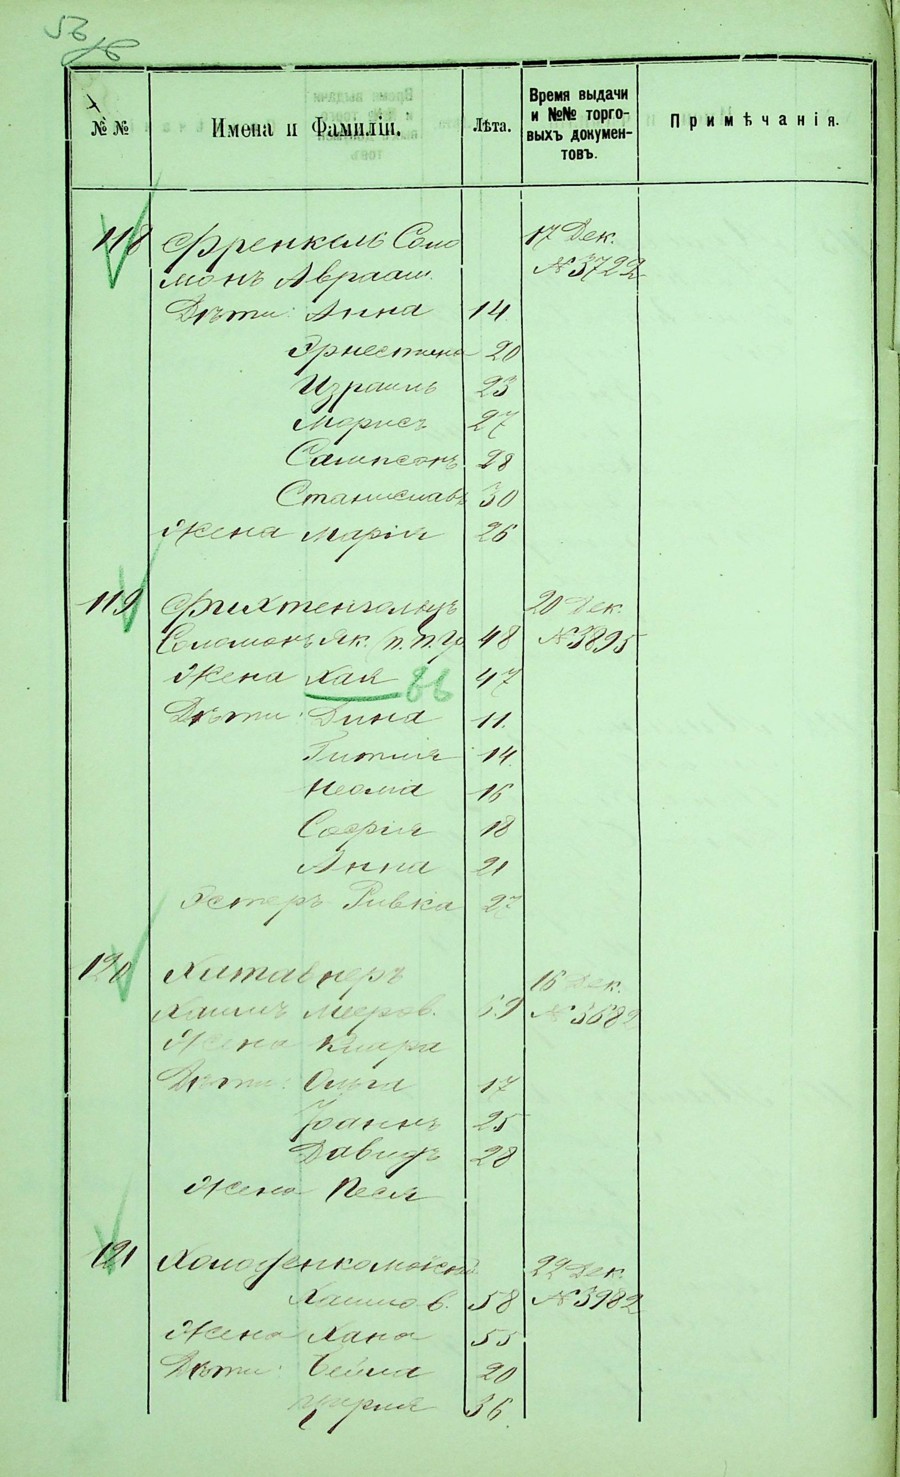 № №
Имена и Фамиліи.
Лѣта.
Время выдачи
и №№ торго-
выхъ докумен-
товъ.
Примѣчанія.
118 Френкель Соло 17 Дек.
монъ Авраам. № 3722
Дѣти: Анна 14
Эрнестина 20
Израиль 23
Морисъ 27
Сампсонъ 28
Станиславъ 30
Жена Марія 26
119 Фихтенгольцъ 20 Дек.
Соломонъ Як. 48 № 3895
Жена Хая 47
Дѣти: Дина 11.
Гитля 14
Неома 16
Софія 18
Анна 21
Эстеръ Ривка 27
120 Хитавнеръ 16 Дек.
Хаимъ Мееров. 69 № 3682
Жена Клара
Дѣти: Ольга 17
Іоаннъ 25
Давидъ 28
Жена Песя
121 Холоденко 22 Дек.
Хаимов. 58 № 3982
Жена Хана 55
Дѣти: Бейла 20
36